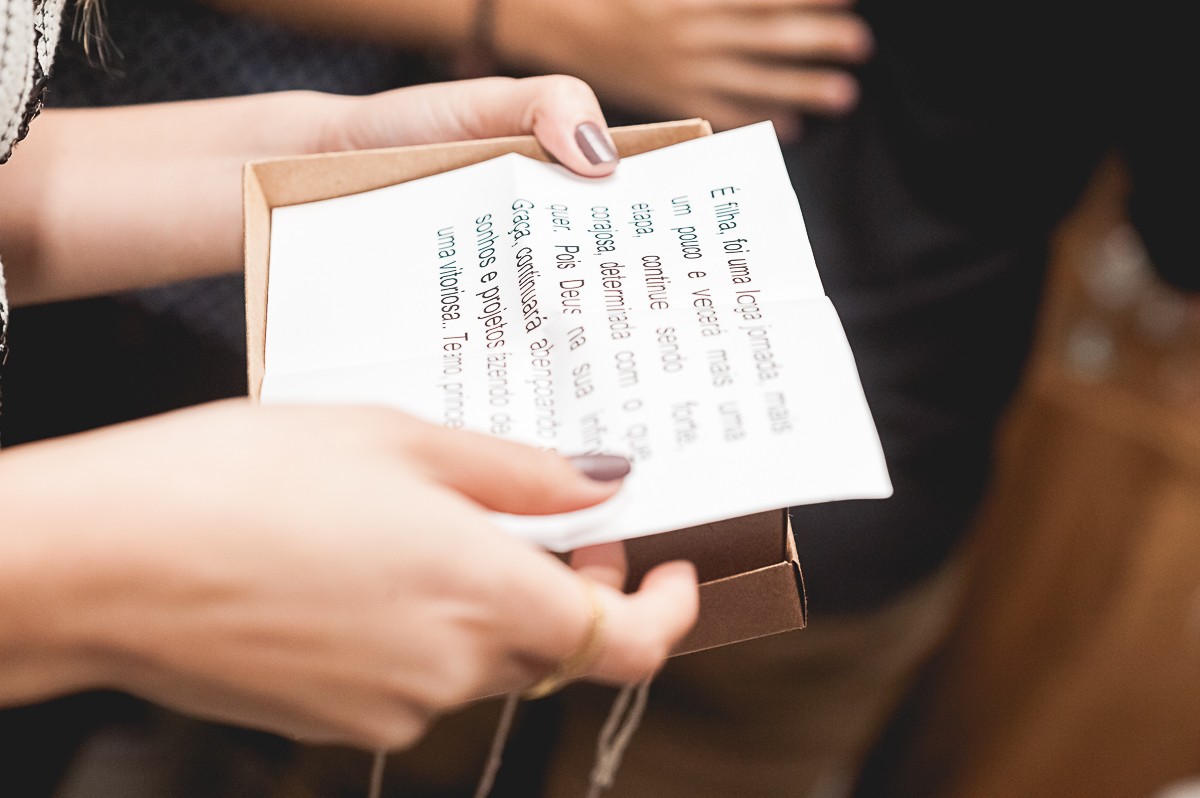 É filha, foi uma longa jornada, mais
um pouco e vecerá mais uma
etapa, continue sendo forte,
corajosa, determinada com o que
quer. Pois Deus na sua
Graça, continuará abençoando
sonhos e projetos fazendo de
uma vitoriosa.. Te amo,